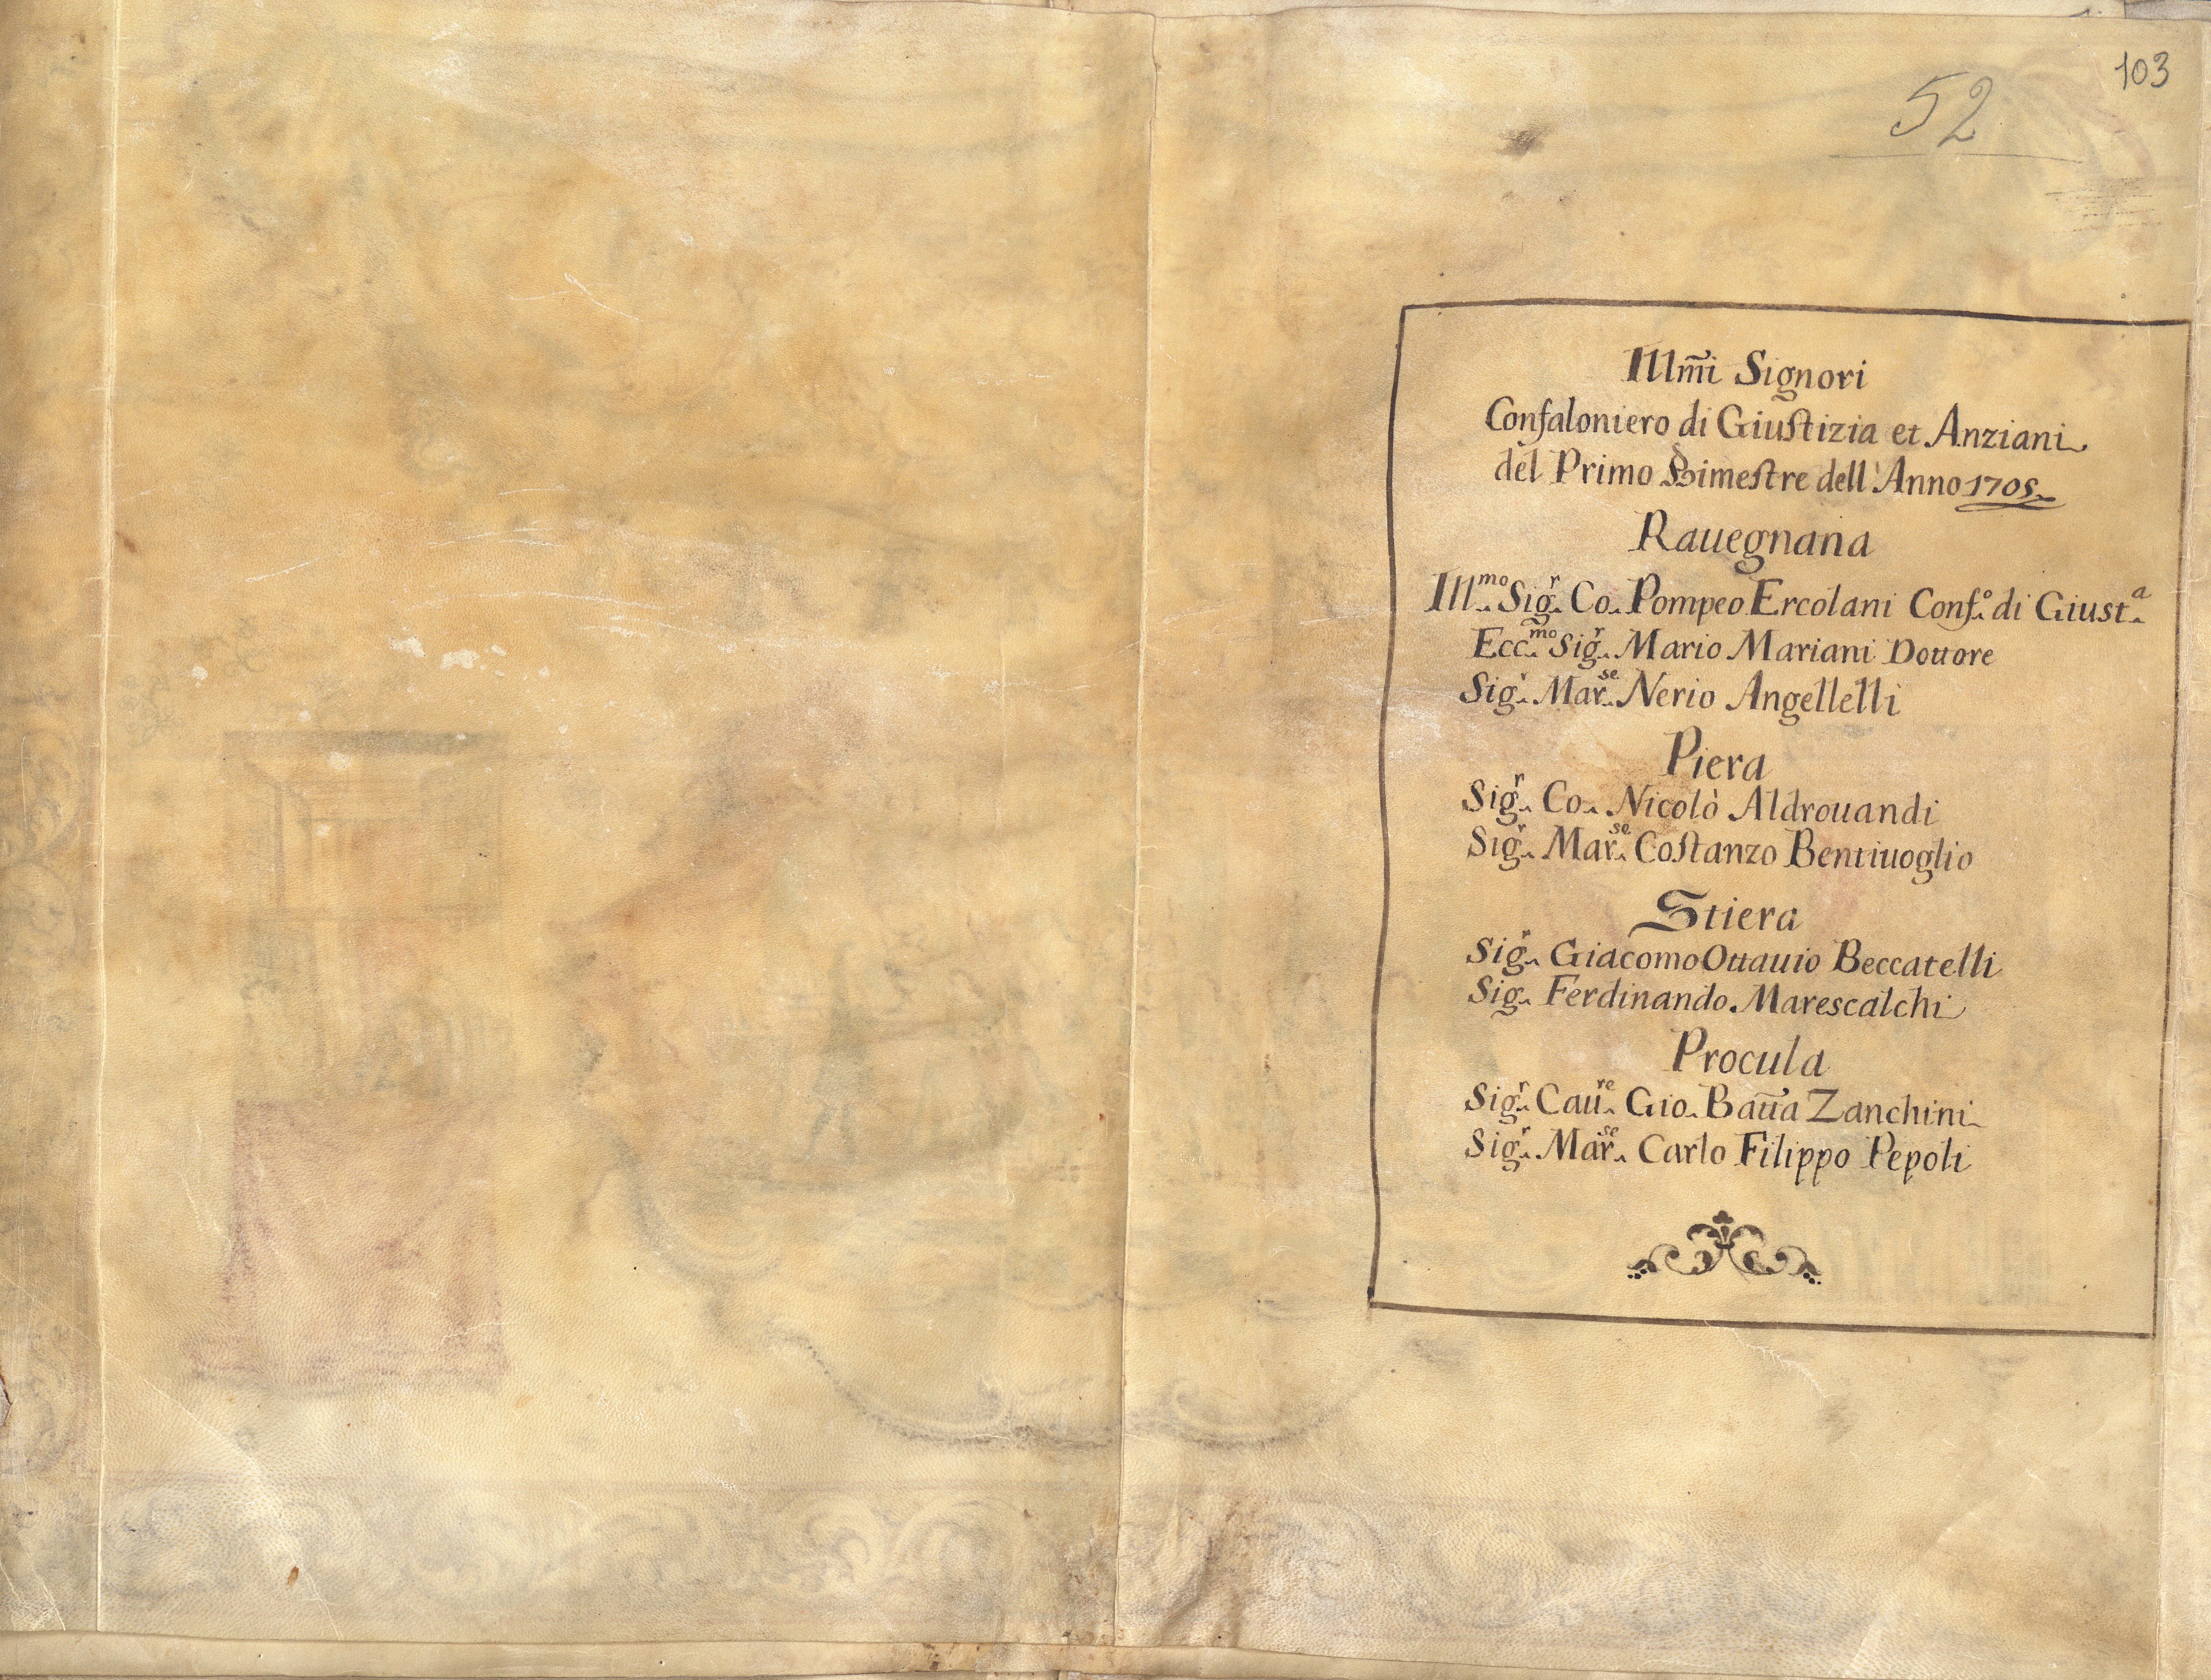 103
52
Illm̃i Signori
Confaloniero di Giustizia et Anziani
del Primo Bimestre dell'Anno 1705
Rauegnana
Ill.mo Sig.r Co. Pompeo Ercolani Conf.o di Giust.a
Ecc.mo Sig.r Mario Mariani Dottore
Sig.r Mar.se Nerio Angellelli
Piera
Sig.r Co. Nicolò Aldrouandi
Sig.r Mar.se Costanzo Bentiuoglio
Stiera
Sig.r Giacomo Ottauio Beccatelli
Sig. Ferdinando Marescalchi
Procula
Sig.r Cau.re Gio. Batt̃a Zanchini
Sig.r Mar.se Carlo Filippo Pepoli